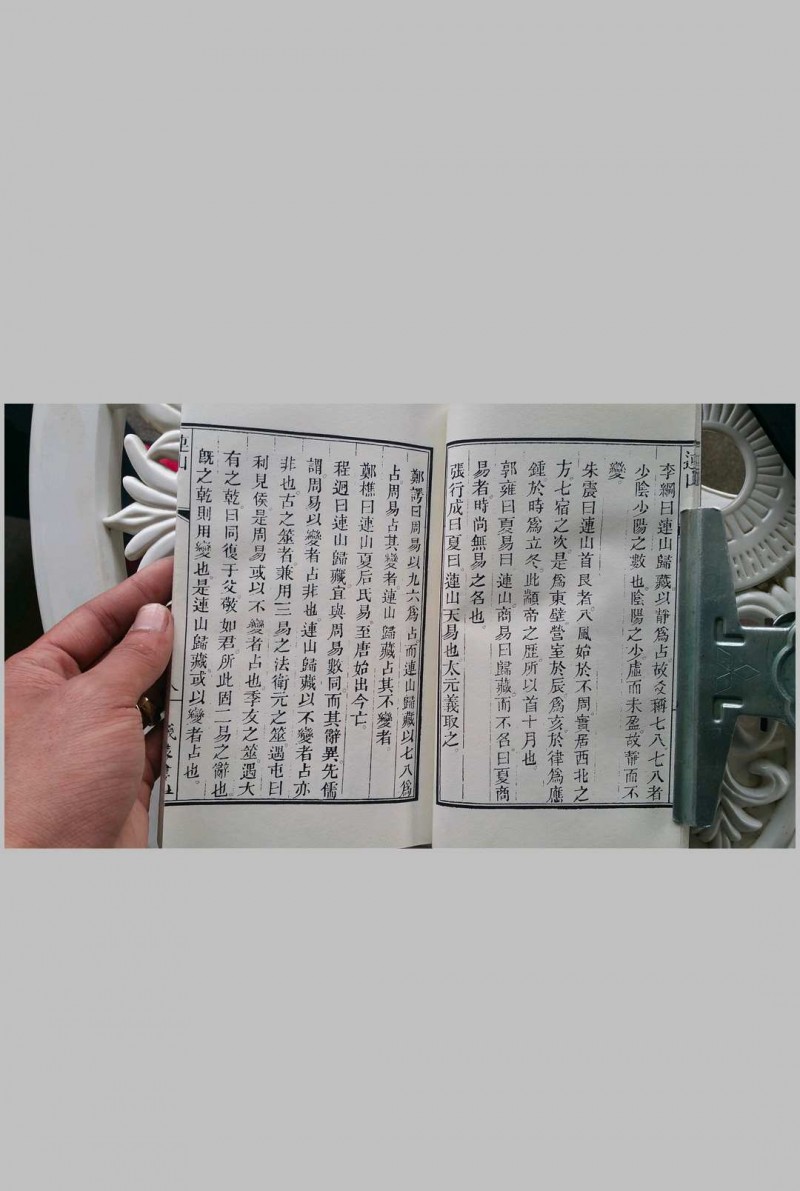 連山
李綱曰連山歸藏以靜爲占故爻稱七八七八者
少陰少陽之數也陰陽之少虛而未盈故靜而不
變
朱震曰連山首艮者八風始於不周實居西北之
方七宿之次是爲東壁營室於辰爲亥於律爲應
鍾於時爲立冬此顓帝之歷所以首十月也
郭雍曰夏易曰連山商易曰歸藏而不名曰夏商
易者時尚無易之名也
張行成曰夏曰連山天易也太元義取之
鄭諤曰周易以九六爲占而連山歸藏以七八爲
占周易占其變者連山歸藏占其不變者
鄭樵曰連山夏后氏易至唐始出今亡
程迥曰連山歸藏宜與周易數同而其辭異先儒
謂周易以變者占非也連山歸藏以不變者占亦
非也古之筮者兼用三易之法衛元之筮遇屯曰
利見侯是周易或以不變者占也季友之筮遇大
有之乾曰同復于父敬如君所此固二易之辭也
既之乾則用變也是連山歸藏或以變者占也
連山
八